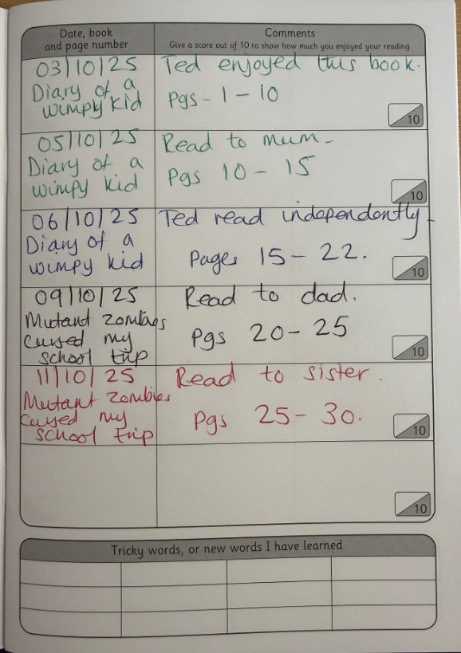 Date, book
and page number
Comments
Give a score out of 10 to show how much you enjoyed your reading
03/10/25
Diary of a
wimpy kid
Ted enjoyed this book.
Pgs - 1 - 10
10
05/10/25
Diary of a
wimpy kid
Read to mum -
Pgs 10 - 15
10
06/10/25
Diary of a
wimpy kid
Ted read independently -
Pages 15 - 22.
10
09/10/25
Mutant zombies
cursed my
school trip
Read to dad.
Pgs 20 - 25
10
11/10/25
Mutant zombies
cursed my
school trip
Read to sister.
Pgs 25 - 30.
10
10
Tricky words, or new words I have learned